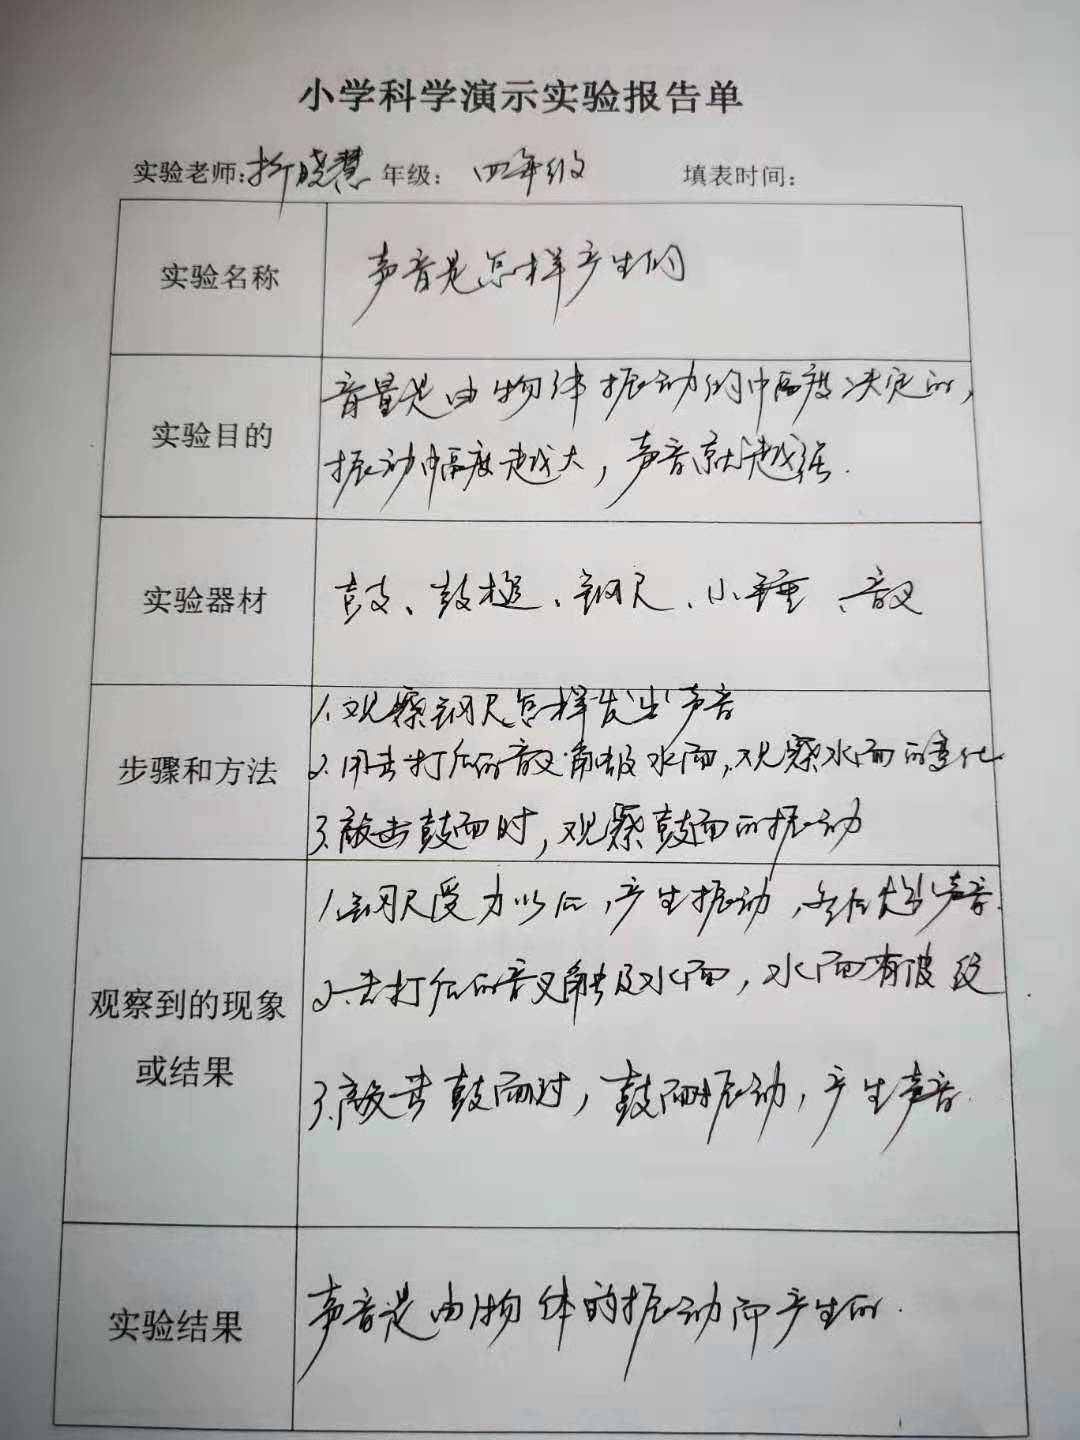 小学科学演示实验报告单
实验老师:折晓慧 年级: 四年级 填表时间:
实验名称 声音是怎样产生的
音量是由物体振动的幅度决定的,
实验目的
振动幅度越大,声音就越强.
实验器材 鼓、鼓槌、钢尺、小锤、音叉
1.观察钢尺怎样发出声音
步骤和方法
2.用击打后的音叉触及水面,观察水面的变化
3.敲击鼓面时,观察鼓面的振动
1.钢尺受力以后,产生振动,声音.
2.击打后的音叉触及水面,水面有波纹
观察到的现象
或结果
3.敲击鼓面时,鼓面振动,产生声音.
实验结果 声音是由物体的振动而产生的.